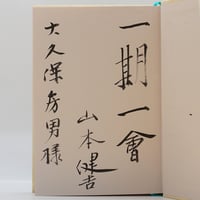 一期一會
山本健吉
大久保房男様